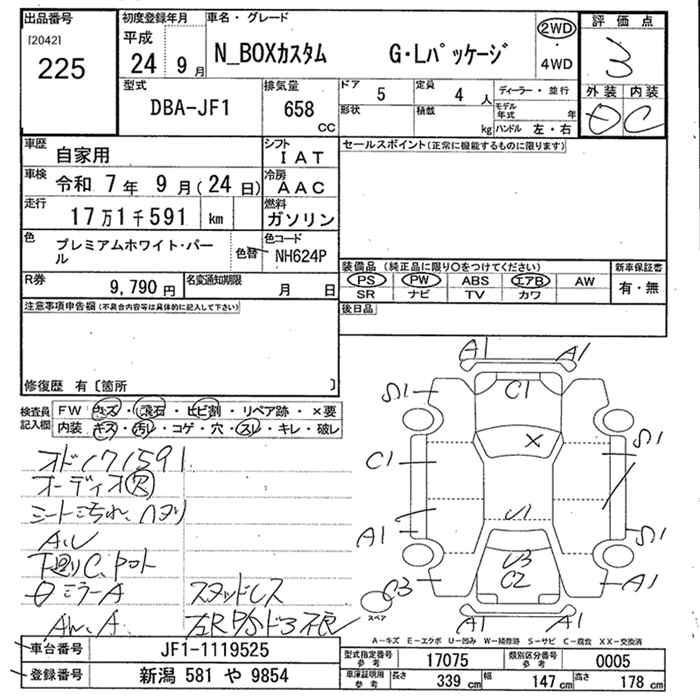 出品番号
[2042]
225
初度登録年月
平成
24年 9月
車名・グレード
N_BOXカスタム G・Lパッケージ
2WD
・
4WD
評価点
3
外装 内装
C
型式
DBA-JF1
排気量
658
cc
ドア 5
形状
定員 4 人
積載 kg
ディーラー・並行
モデル年式 年
ハンドル 左・右
車歴 自家用
シフト IAT
車検 令和 7年 9月(24日)
冷房 AAC
走行 17万1千591 km
燃料 ガソリン
色 プレミアムホワイト・パール
色替
色コード NH624P
R券 9,790円
名変通知期限 月 日
セールスポイント(正常に機能するものに限ります)
装備品(純正品に限り○をつけてください)
PS PW ABS エアB AW
SR ナビ TV カワ
新車保証書
有・無
後日品
注意事項申告欄(不具合内容等は具体的に記入して下さい)
修復歴 有〔箇所 〕
検査員記入欄
FW キズ・飛石・ヒビ割・リペア跡・×要
内装 キズ・汚レ・コゲ・穴・スレ・キレ・破レ
オド171591
オーディオ欠
シート汚れ、ハヌリ
A.U
下廻りC、
ミラーA スタッドレス
A
A1 A1
C1
X
C1
A1
U1
U3
C2
A1
A1 A1
スペア
A−キズ E−エクボ U−凹み W−補修跡 S−サビ C−腐食 XX−交換済
車台番号 JF1-1119525
登録番号 新潟 581 や 9854
型式指定番号 参考 17075
類別区分番号 参考 0005
車庫証明用 参考 長さ 339 cm 幅 147 cm 高さ 178 cm